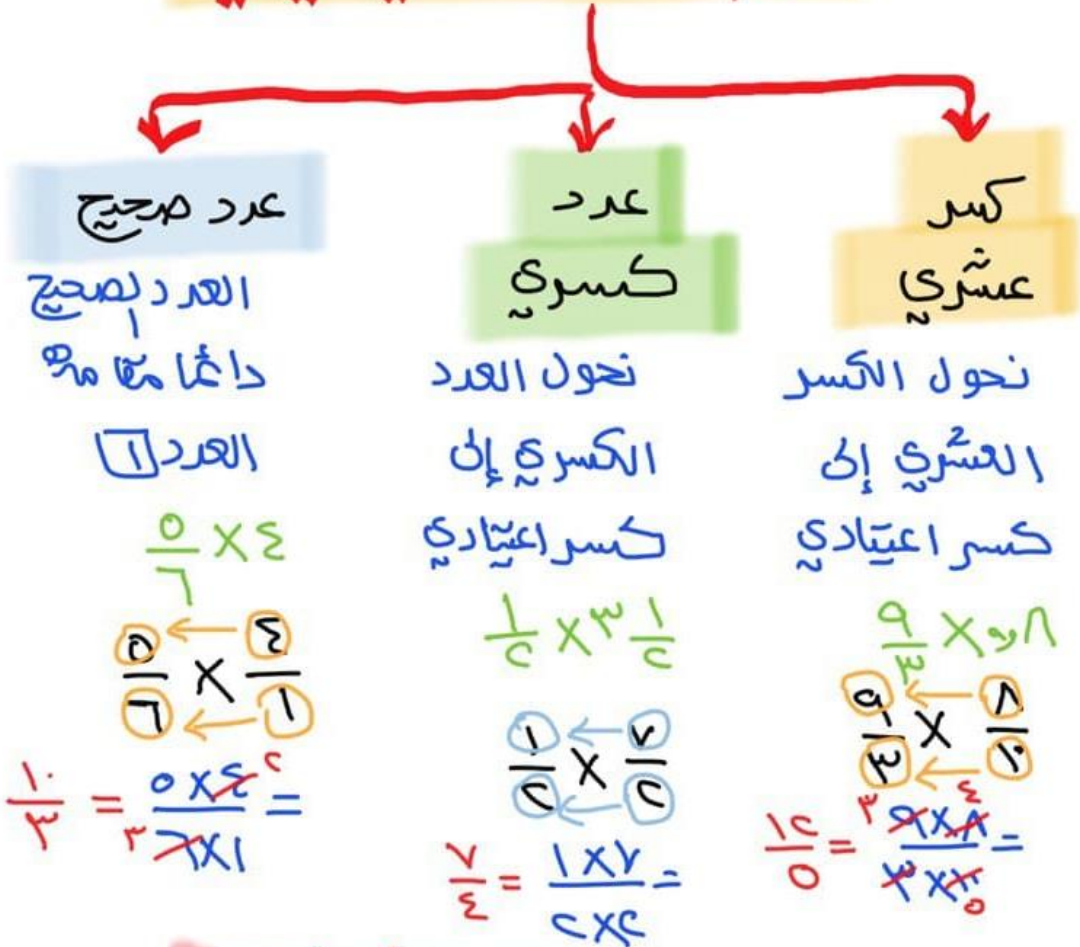 كسر
عشري
نحول الكسر
العشري إلى
كسر اعتيادي
٨و٠ × ٩/٣
٨/١٠ × ٩/٣
= ٩×٨/٣×١٠ = ١٢/٥
٣ ٤ ٥
عدد
كسري
نحول العدد
الكسري إلى
كسر اعتيادي
٣ ١/٢ × ١/٢
٧/٢ × ١/٢
= ١×٧/٢×٢ = ٧/٤
عدد صحيح
العدد الصحيح
دائما مقامه
العدد ١
٤ × ٥/٦
٤/١ × ٥/٦
= ٥×٤/٦×١ = ١٠/٣
٢ ٣